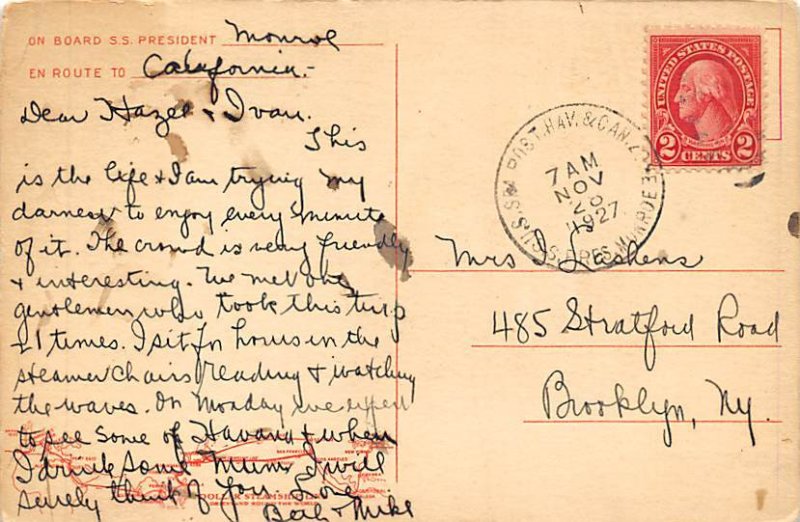 ON BOARD S.S. PRESIDENT Monroe
EN ROUTE TO California.-
Dear Hazel & Ivan.
This
is the life & I am trying my
darness to enjoy every minute
of it. The crowd is very friendly
& interesting. I've met one
gentlemen who took this trip
21 times. I sit for hours in the
steamer chairs reading & watching
the waves. On Monday we expect
to see some of Havana & when
I drink some Mumm I will
surely think of you. Love
Beth & Mike
DOLLAR STEAMSHIP LINE
UNITED STATES POSTAGE
2 CENTS 2
POST. HAV. & CAN. Z.
7 AM
NOV
20
1927
U.S.S. PRES. MONROE
Mrs I. Lashens
485 Stratford Road
Brooklyn, Ny.